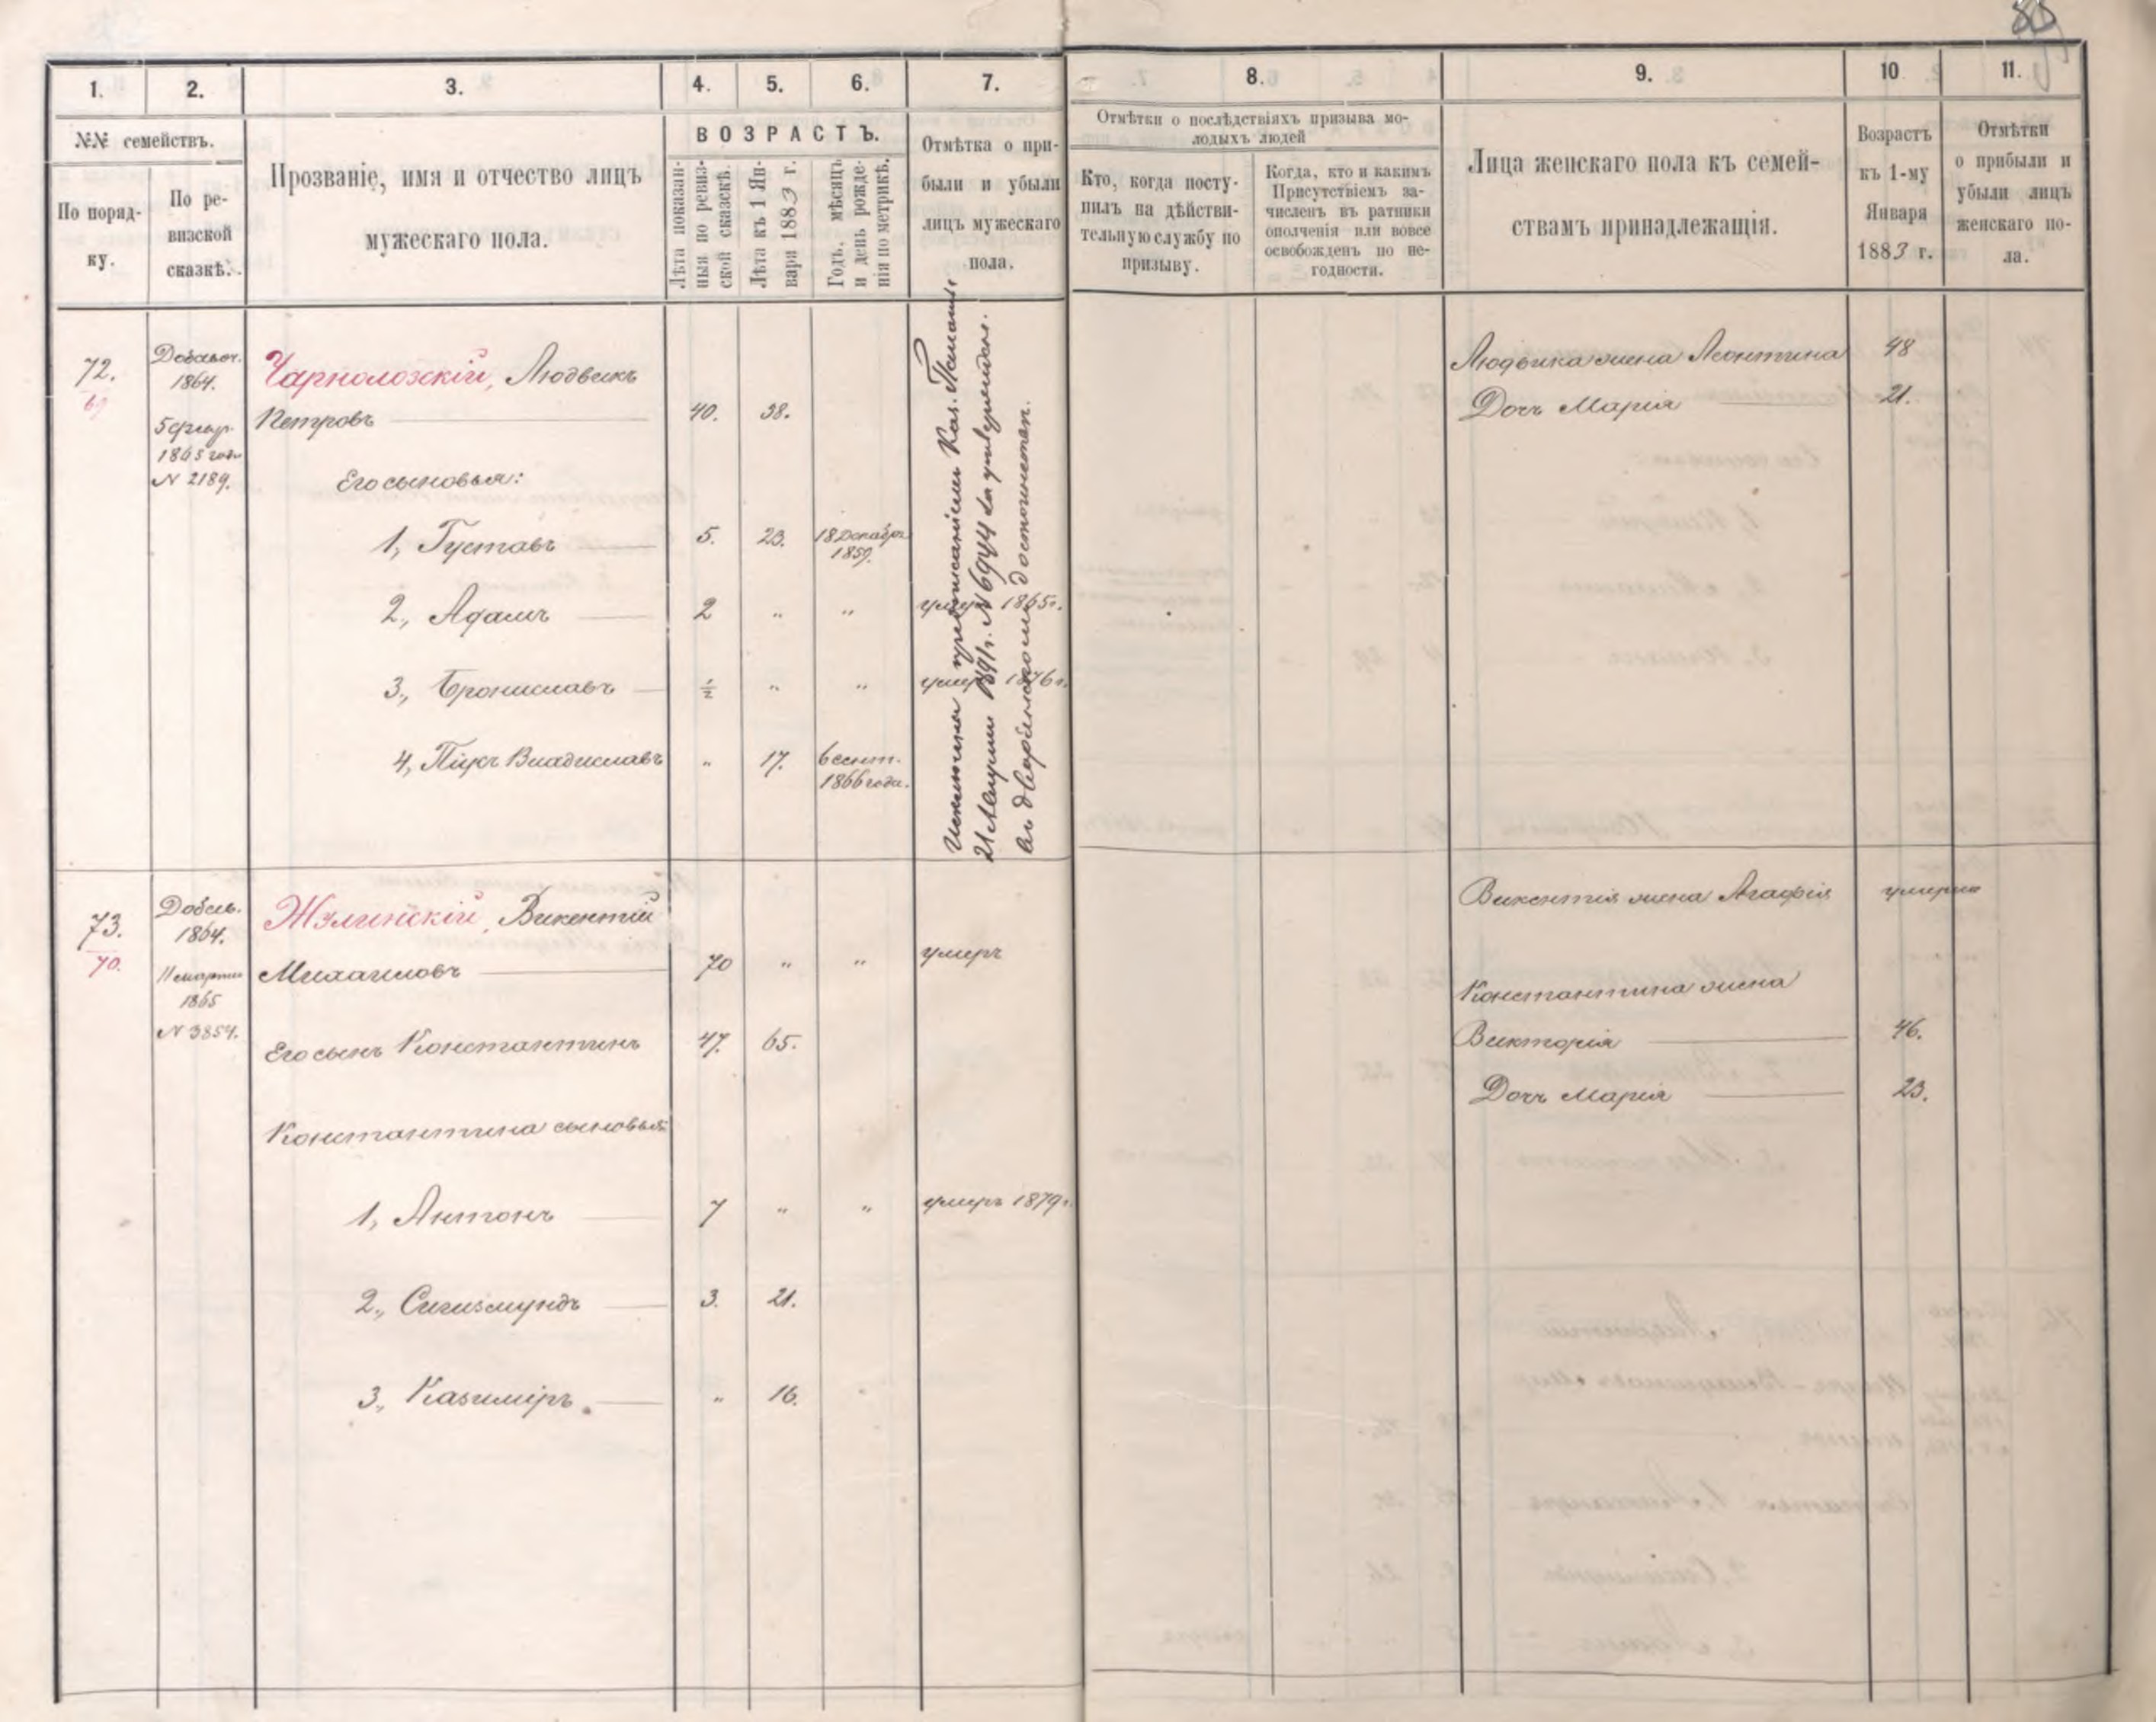 85
1.
2.
3.
4.
5.
6.
7.
8.
9.
10
11.
№№ семействъ.
По поряд-
ку.
По ре-
визской
сказкѣ.
Прозваніе, имя и отчество лицъ
мужескаго пола.
ВОЗРАСТЪ.
Лѣта показан-
ныя по ревиз-
ской сказкѣ.
Лѣта къ 1 Ян-
варя 1883 г.
Годъ, мѣсяцъ
и день рожде-
нія по метрикѣ.
Отмѣтка о при-
были и убыли
лицъ мужескаго
пола.
Отмѣтки о послѣдствіяхъ призыва мо-
лодыхъ людей
Кто, когда посту-
пилъ на дѣйстви-
тельную службу по
призыву.
Когда, кто и какимъ
Присутствіемъ за-
численъ въ ратники
ополченія или вовсе
освобожденъ по не-
годности.
Лица женскаго пола къ семей-
ствамъ принадлежащія.
Возрастъ
къ 1-му
Января
1883 г.
Отмѣтки
о прибыли и
убыли лицъ
женскаго по-
ла.
72.
69
Добавоч.
1864.
5 февр.
1865 года
N 2189.
Чарнолозскій, Людвикъ
Петровъ 40. 38.
Его сыновья:
1, Густавъ 5. 23. 18 Декабря
1859.
2., Адамъ 2 " " умеръ 1865 г.
3., Брониславъ ½ " " умеръ 1876 г.
4, Піусъ Владиславъ " 17. 6 сент.
1866 года.
Исключены предписаніемъ Каз. Палаты
21 1891 г. N 6944 за утвержден.
въ дворянскомъ достоинствѣ.
Людвика жена Леонтина 48
Дочь Марія 21.
73.
70.
Добав.
1864.
11 марта
1865
N 3854.
Жулинскій, Викентій
Михаиловъ 70 " " умеръ
Его сынъ Константинъ 47. 65.
Константина сыновья:
1, Антонъ 7 " " умеръ 1879 г.
2., Сигизмундъ 3. 21.
3., Казиміръ. " 16.
Викентія жена Агафія умерла
Константина жена
Викторія 46.
Дочь Марія 23.